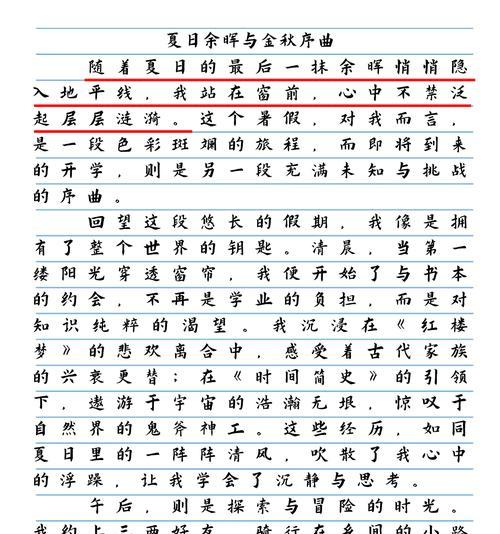 夏日余晖与金秋序曲
随着夏日的最后一抹余晖悄悄隐
入地平线，我站在窗前，心中不禁泛
起层层涟漪。这个暑假，对我而言，
是一段色彩斑斓的旅程，而即将到来
的开学，则是另一段充满未知与挑战
的序曲。
回望这段悠长的假期，我像是拥
有了整个世界的钥匙。清晨，当第一
缕阳光穿透窗帘，我便开始了与书本
的约会，不再是学业的负担，而是对
知识纯粹的渴望。我沉浸在《红楼
梦》的悲欢离合中，感受着古代家族
的兴衰更替；在《时间简史》的引领
下，遨游于宇宙的浩瀚无垠，惊叹于
自然界的鬼斧神工。这些经历，如同
夏日里的一阵阵清风，吹散了我心中
的浮躁，让我学会了沉静与思考。
午后，则是探索与冒险的时光。
我约上三两好友，骑行在乡间的小路